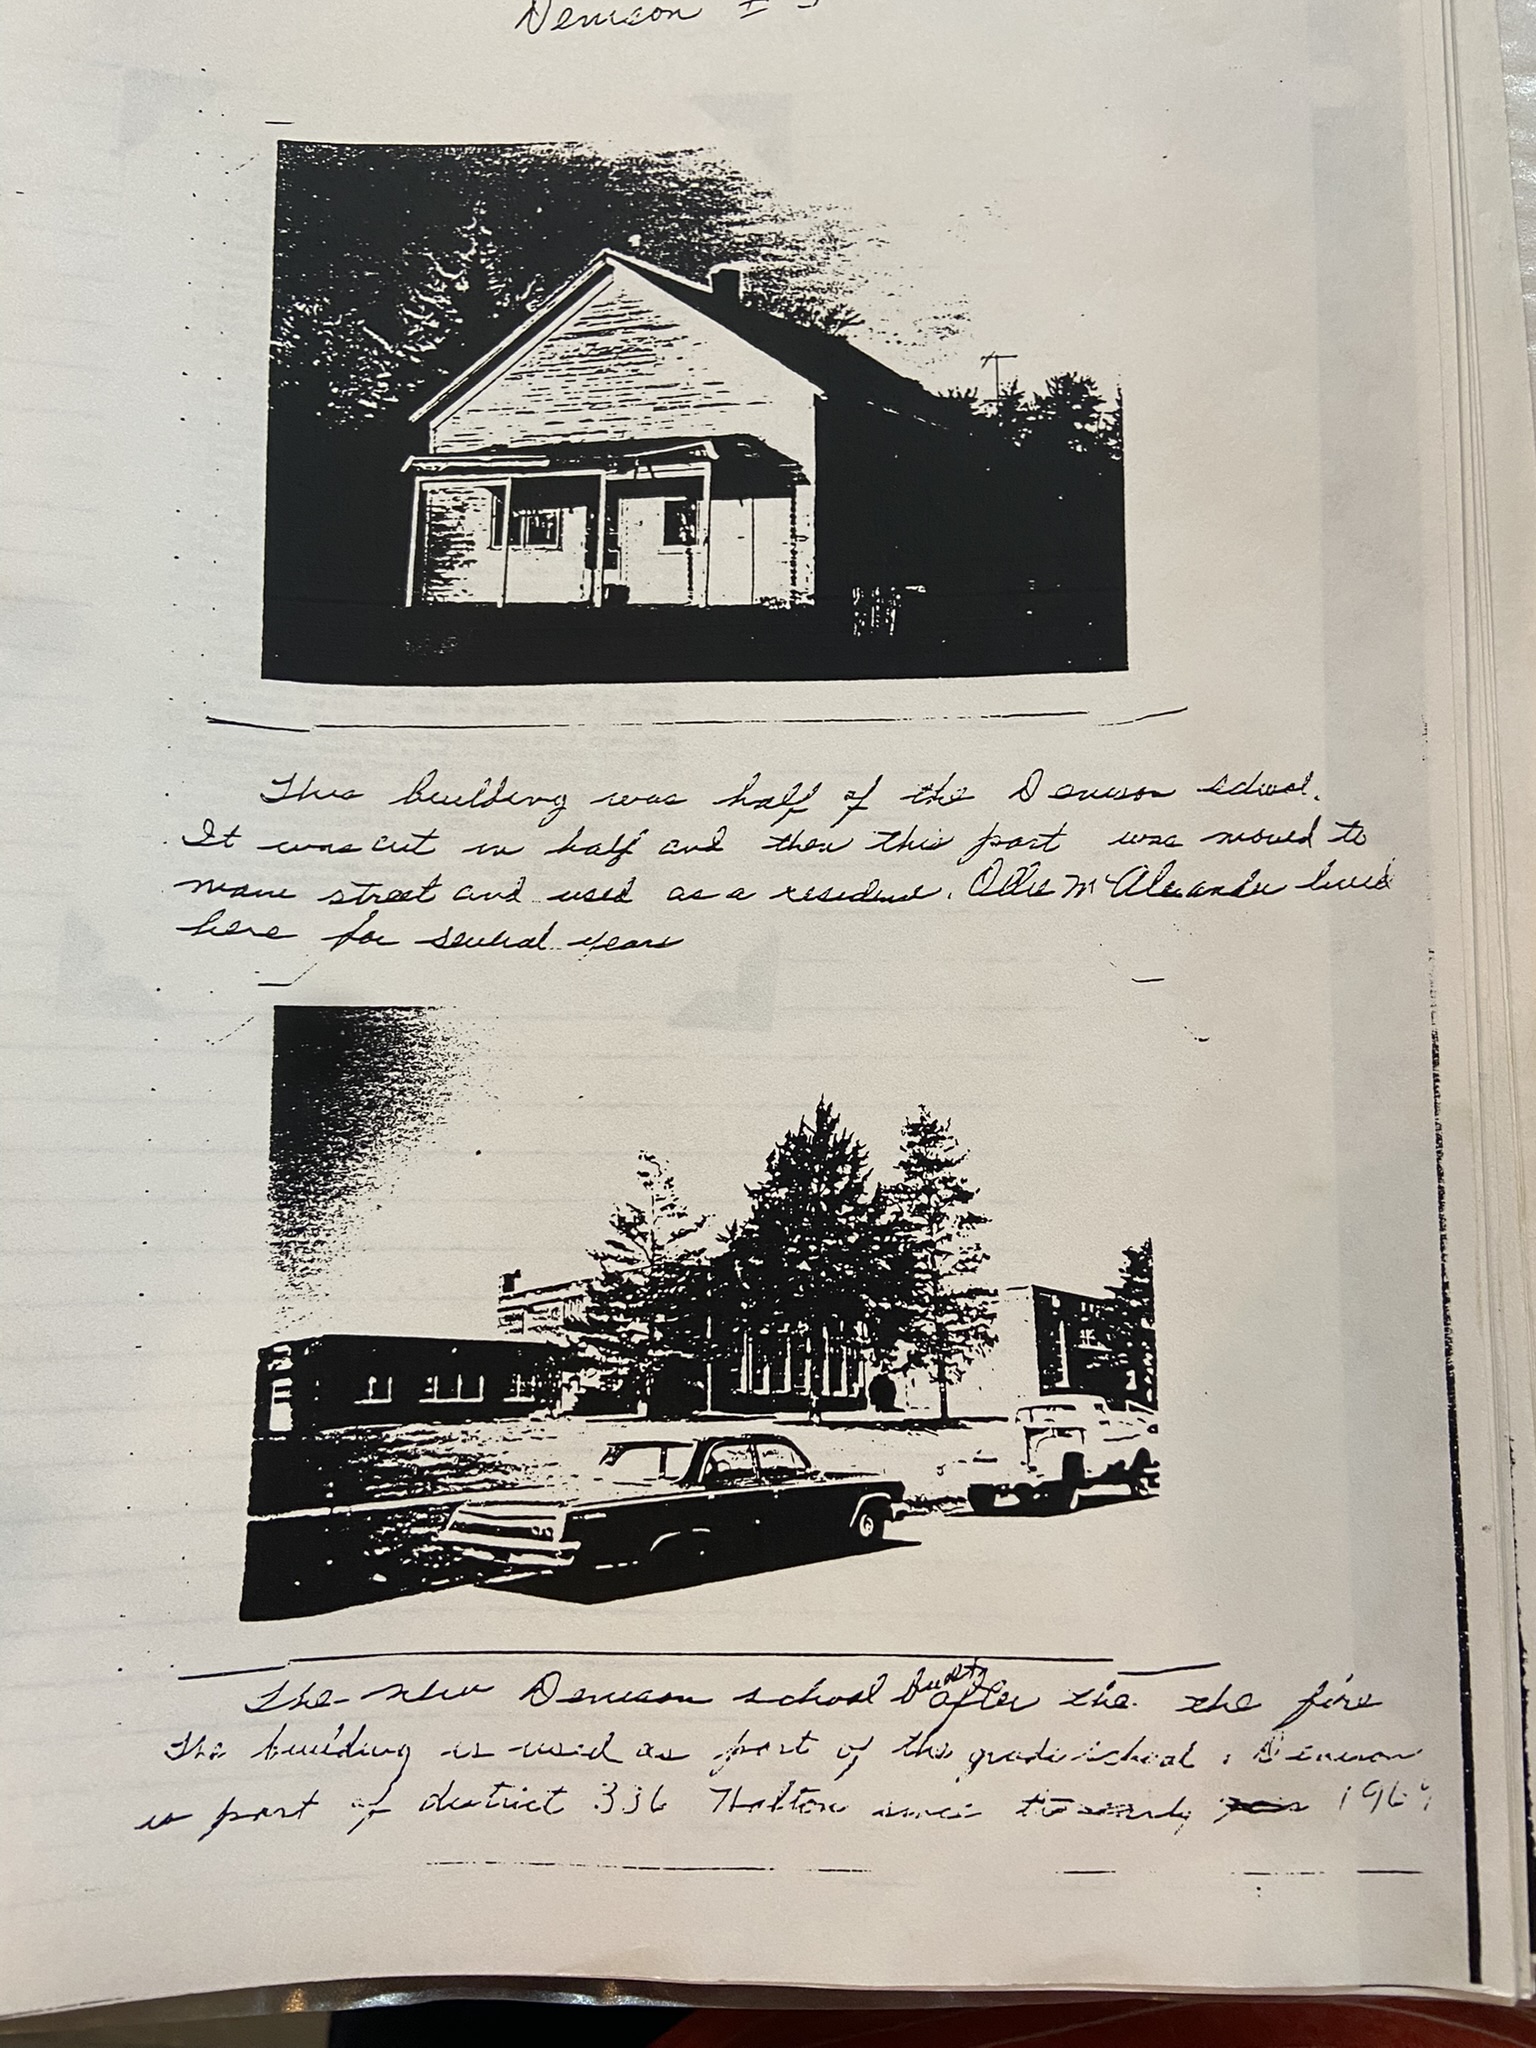 Denison
This building was half of the Denison school.
It was cut in half and then this part was moved to
main street and used as a residence. Ollie McAlexander lived
here for several years
The new Denison school built after the the fire
The building is used as part of the grade school. Denison
is part of district 336 Holton since the early